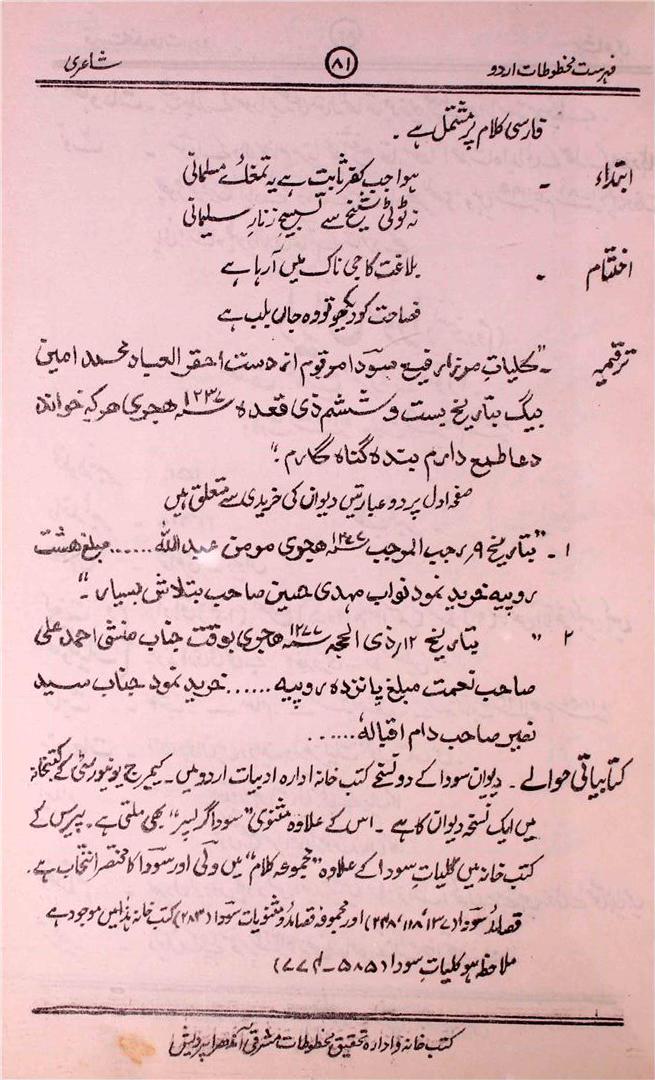 فہرست مخطوطات اردو ۸۱ شاعری
فارسی کلام پر مشتمل ہے ۔
ابتداء ۔ ہوا جب کفر ثابت ہے یہ تمغائے مسلمانی
نہ ٹوٹی شیخ سے تسبیحِ زنارِ سلیمانی
اختتام ۔ بلاغت کا جی ناک میں آ رہا ہے
فصاحت کو دیکھو تو وہ جاں بلب ہے
ترقیمہ ۔ "کلیاتِ مرزا رفیع سودا مرقوم از دست احقر العباد محمد امین
بیگ بتاریخ بست و ششم ذی قعدہ ۱۲۳۷ سنہ ہجری ہر کہ خواند
دعا طمع دارم بندہ گناہ گارم ۔"
صفحہ اول پر دو عبارتیں دیوان کی خریدی سے متعلق ہیں
۱ ۔ "بتاریخ ۹ رجب المرجب سنہ ہجری مومن عبداللہ ...... مبلغ ہشت
روپیہ خرید نمود نواب مہدی حسین صاحب بتلاش بسیار ۔"
۲ " بتاریخ ۱۲ ذی الحجہ سنہ ۱۲۷۷ ہجری بوقت جناب منشی احمد علی
صاحب نعمت مبلغ پانزدہ روپیہ ...... خرید نمود جناب سید
نصیر صاحب دام اقبالہٗ ......
کتابیاتی حوالے ۔ دیوان سودا کے دو نسخے کتب خانہ ادارہ ادبیات اردو میں ۔ کیمبرج یونیورسٹی کے کتبخانہ
میں ایک نسخہ دیوان کا ہے ۔ اس کے علاوہ مثنوی "سوداگر پسر" بھی ملتی ہے ۔ پیرس کے
کتب خانہ میں کلیاتِ سودا کے علاوہ "مجموعہ کلام" میں ولی اور سودا کا مختصر انتخاب ہے ۔
قصائد سودا (۱۳۷، ۱۱۸، ۲۴۸) اور مجموعہ قصائد و مثنویات سودا (۲۸۳) کتب خانہ ہذا میں موجود ہے
ملاحظہ ہو کلیاتِ سودا (۵۸۵ ۔ ۷۷۴)
کتب خانہ و ادارہ تحقیق مخطوطات مشرقی آندھرا پردیش